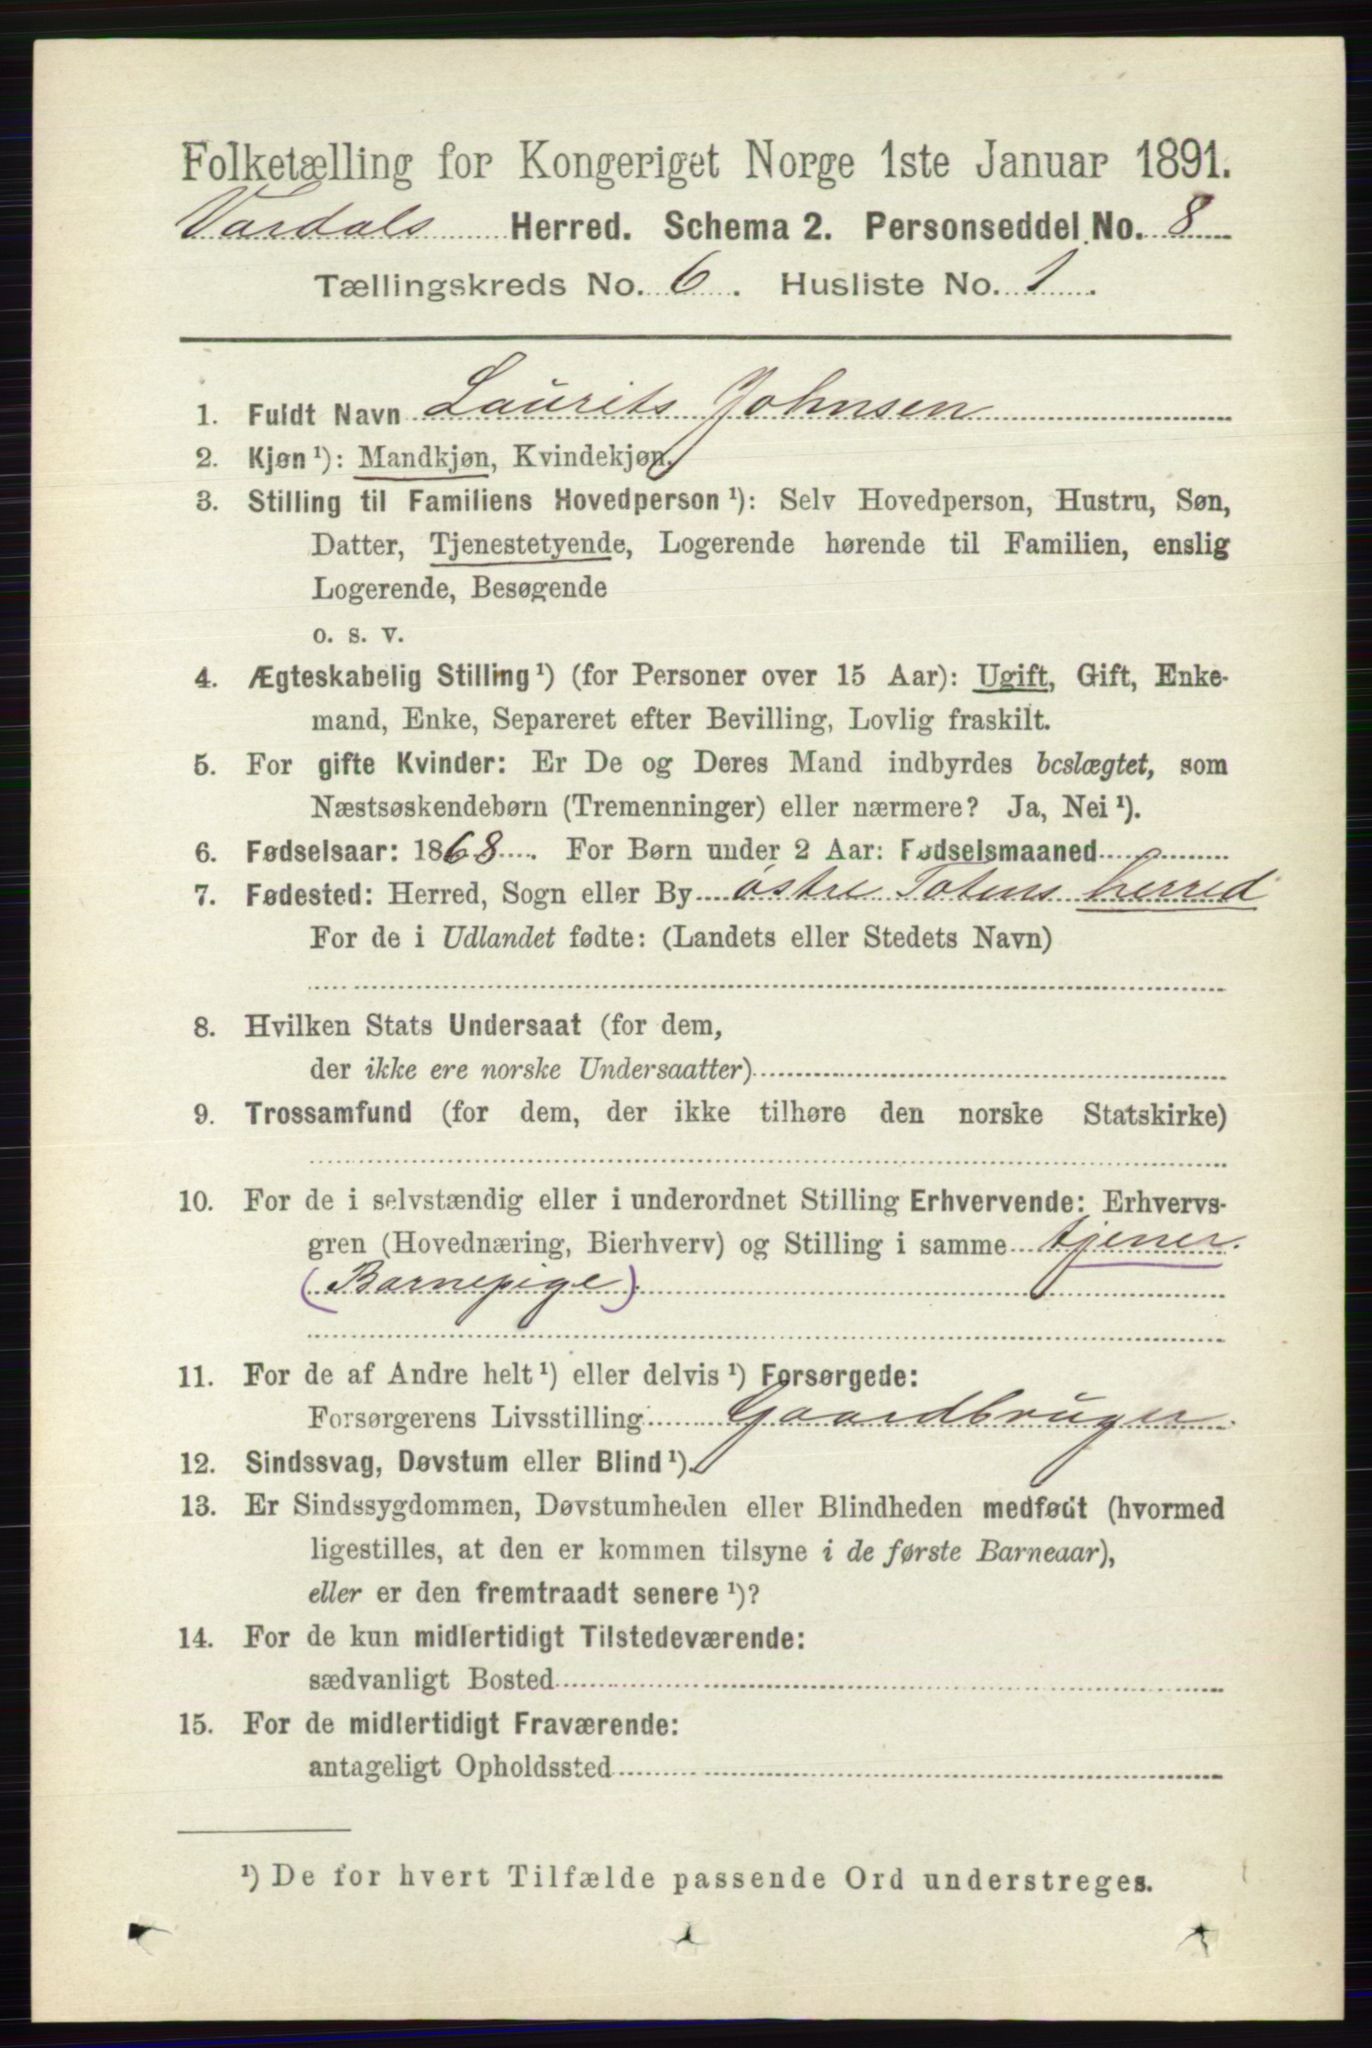 Folketælling for Kongeriget Norge 1ste Januar 1891.
Vardals Herred. Schema 2. Personseddel No. 8
Tællingskreds No. 6. Husliste No. 1.
1. Fuldt Navn Laurits Johnsen
2. Kjøn ¹): Mandkjøn, Kvindekjøn.
3. Stilling til Familiens Hovedperson ¹): Selv Hovedperson, Hustru, Søn,
Datter, Tjenestetyende, Logerende hørende til Familien, enslig
Logerende, Besøgende
o. s. v.
4. Ægteskabelig Stilling ¹) (for Personer over 15 Aar): Ugift, Gift, Enke-
mand, Enke, Separeret efter Bevilling, Lovlig fraskilt.
5. For gifte Kvinder: Er De og Deres Mand indbyrdes beslægtet, som
Næstsøskendebørn (Tremenninger) eller nærmere? Ja, Nei ¹).
6. Fødselsaar: 1868. For Børn under 2 Aar: Fødselsmaaned
7. Fødested: Herred, Sogn eller By østre Totens herred
For de i Udlandet fødte: (Landets eller Stedets Navn)
8. Hvilken Stats Undersaat (for dem,
der ikke ere norske Undersaatter)
9. Trossamfund (for dem, der ikke tilhøre den norske Statskirke)
10. For de i selvstændig eller i underordnet Stilling Erhvervende: Erhvervs-
gren (Hovednæring, Bierhverv) og Stilling i samme tjener.
(Barnepige)
11. For de af Andre helt ¹) eller delvis ¹) Forsørgede:
Forsørgerens Livsstilling Gaardbruger.
12. Sindssvag, Døvstum eller Blind ¹).
13. Er Sindssygdommen, Døvstumheden eller Blindheden medfødt (hvormed
ligestilles, at den er kommen tilsyne i de første Barneaar),
eller er den fremtraadt senere ¹)?
14. For de kun midlertidigt Tilstedeværende:
sædvanligt Bosted
15. For de midlertidigt Fraværende:
antageligt Opholdssted
¹) De for hvert Tilfælde passende Ord understreges.